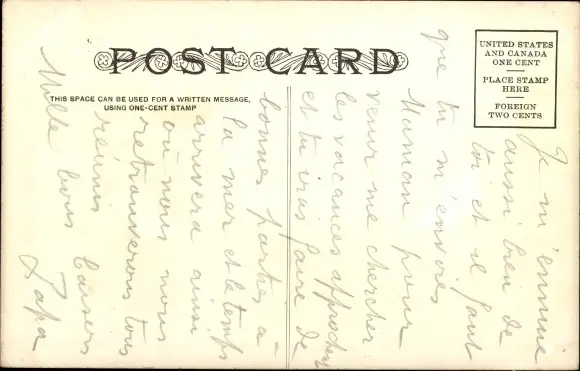 POST CARD
THIS SPACE CAN BE USED FOR A WRITTEN MESSAGE,
USING ONE-CENT STAMP
UNITED STATES
AND CANADA
ONE CENT
PLACE STAMP
HERE
FOREIGN
TWO CENTS
Je m'ennuie
aussi bien de
toi et il faut
que tu m'envoies
Maman pour
venir me chercher
les vacances approchent
et tu iras faire de
bonnes parties à
la mer et le temps
arrivera ainsi
où nous nous
retrouverons tous
réunis
Mille bons baisers
Papa